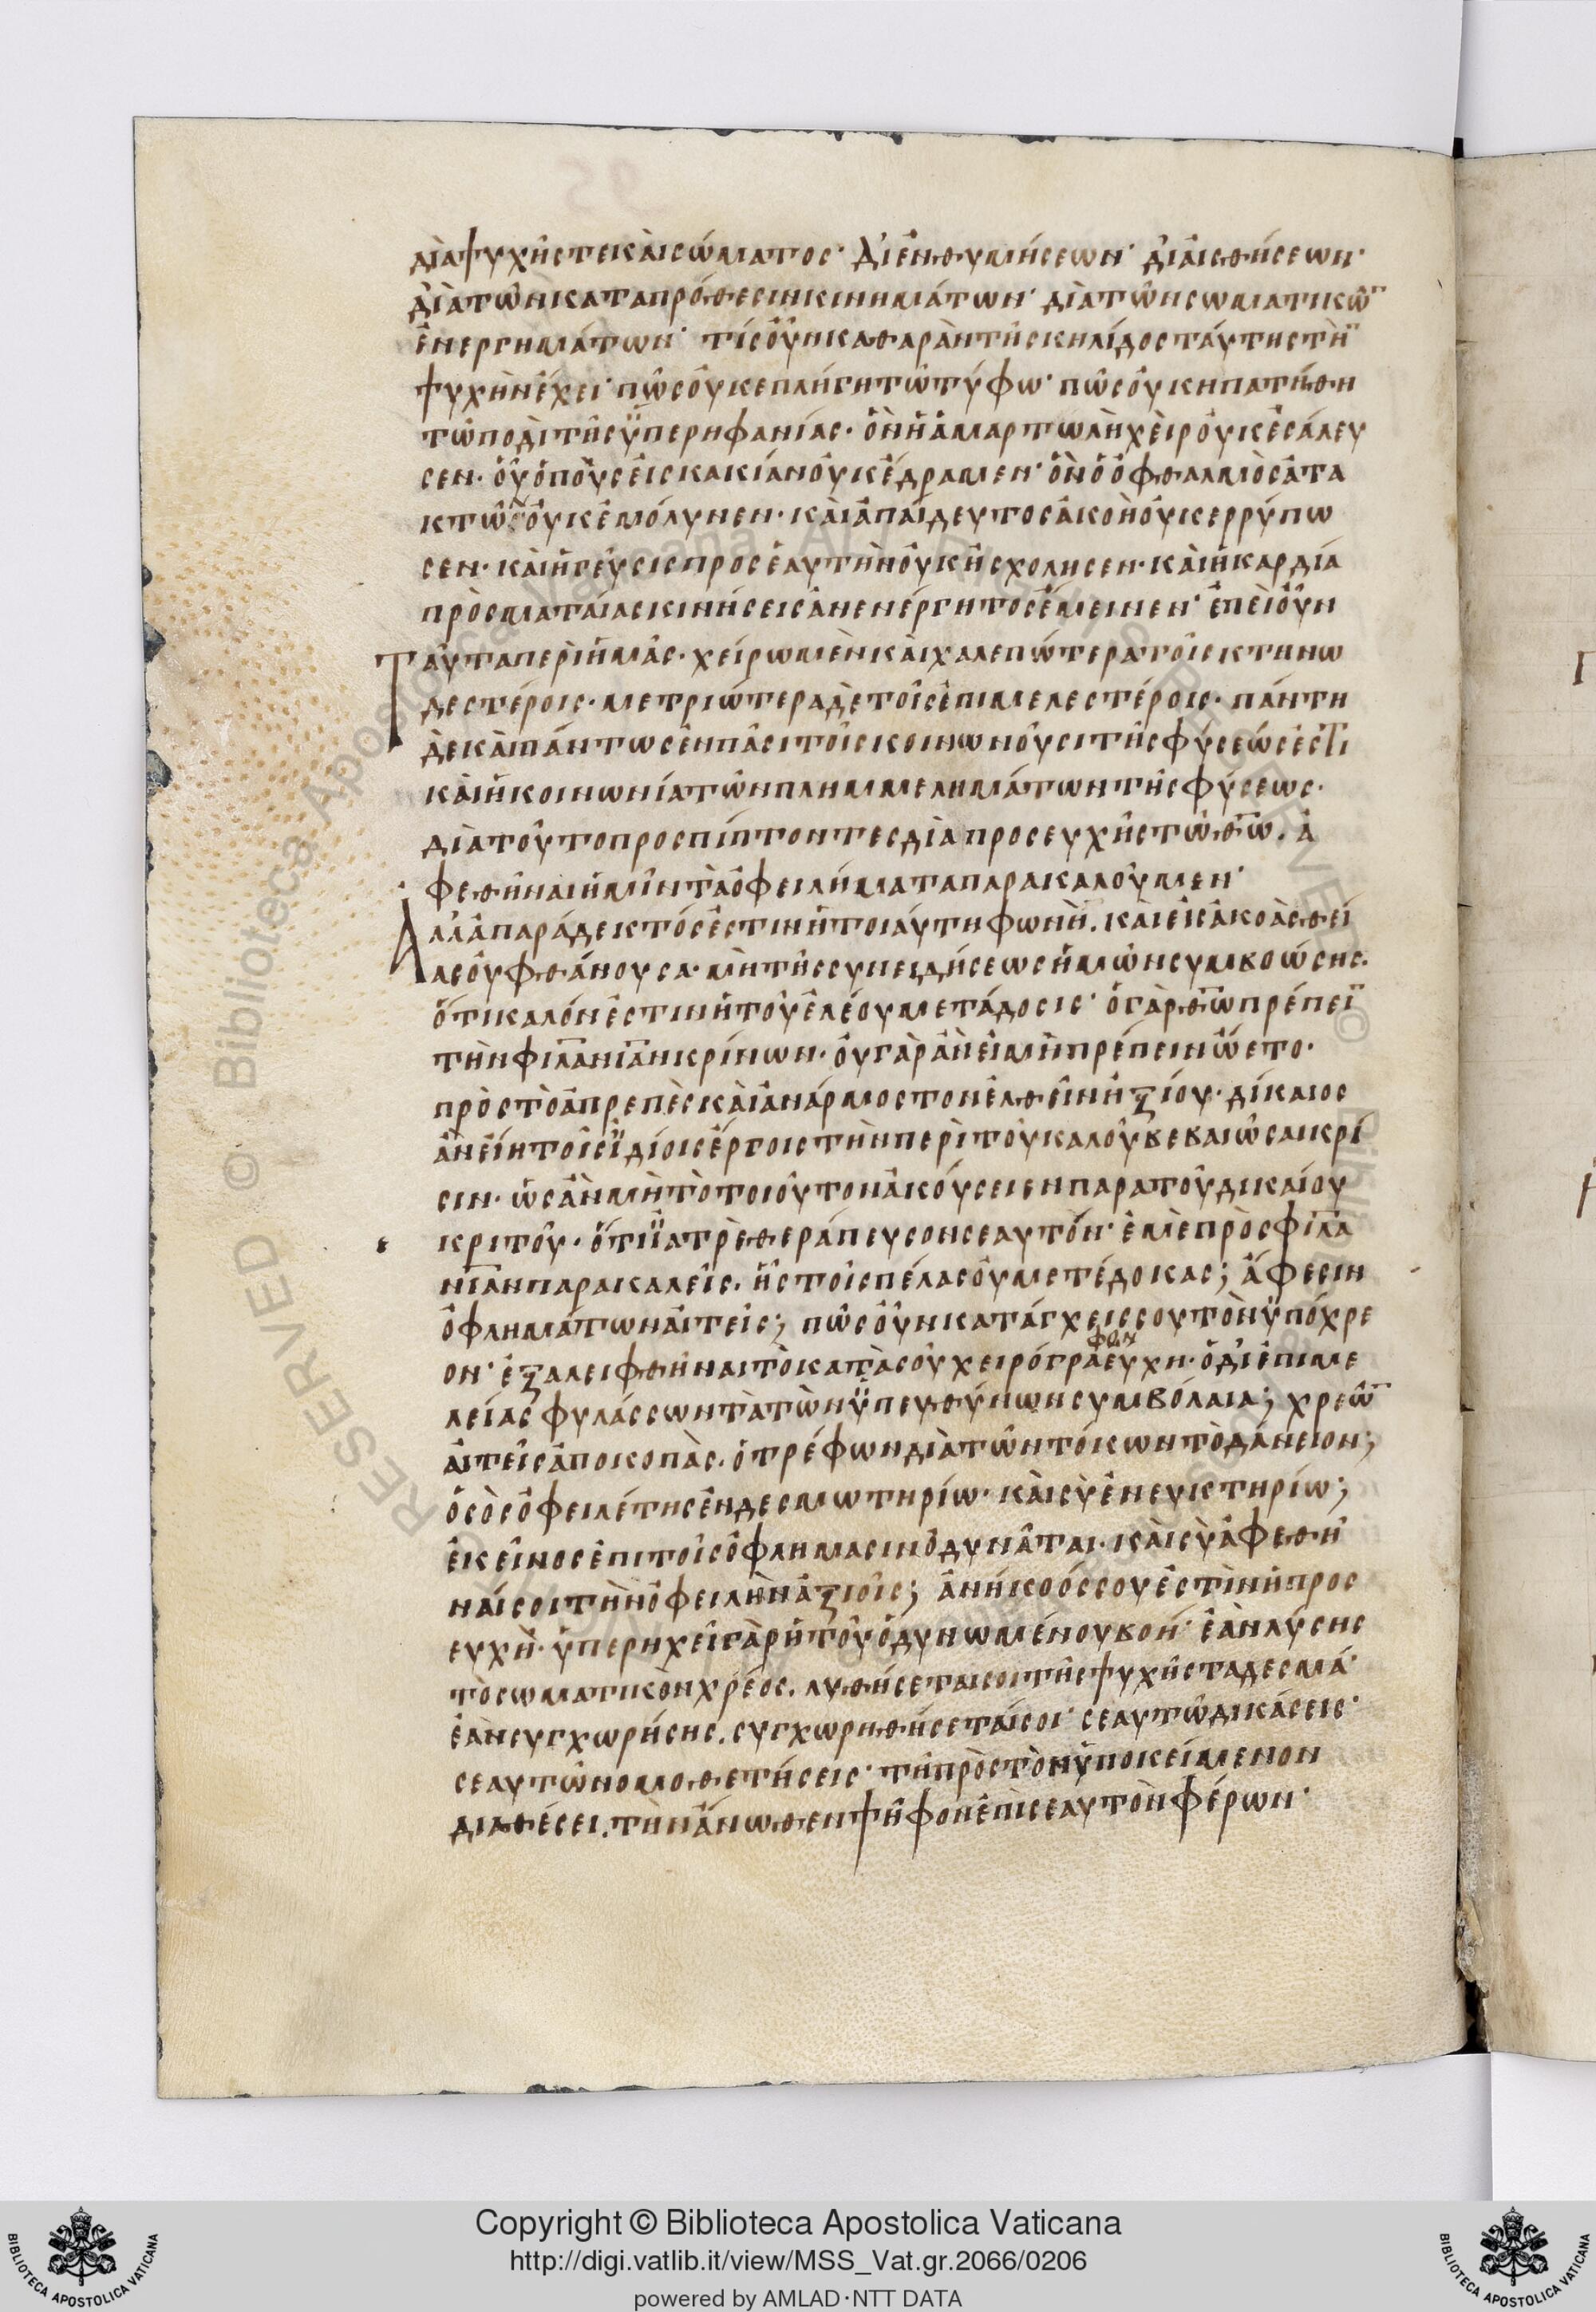 διὰ ψυχῆς τε καὶ σώματος· δι' ἐνθυμήσεων· δι' αἰσθήσεων·
διὰ τῶν κατα πρόθεσιν κινημάτων· διὰ τῶν σωματικῶ
ἐνεργημάτων· τίς οὖν καθαρὰν τῆς κηλίδος ταύτης τὴ
ψυχὴν ἔχει· πῶς οὐκ επλήγη τῶ τύφω· πῶς οὐ κηπατήθη
τῶ ποδὶ τῆς ὑπερηφανίας· ὃν ἡ ἁμαρτωλὴ χεὶρ οὐκ ἐσάλευ
σεν· οὗ ὁ ποὺς εἰς κακίαν οὐκ ἔδραμεν· ὃν ὁ ὀφθαλμὸς ἀτα
κτῶν οὐκ ἐμόλυνεν· καὶ ἀπαίδευτος ἀκοὴ οὐκ ερρύπω
σεν· καὶ ἡ γεῦσις προς ἑαυτὴν οὐκ ἠσχόλησεν· καὶ ἡ καρδία
πρὸς ματαίας κινήσεις ἀνενέργητος ἔμεινεν· ἐπεὶ οὖν
Ταῦτα περὶ ἡμᾶς· χείρω μὲν καὶ χαλεπώτερα τοῖς κτηνω
δεστέροις· μετριώτερα δὲ τοῖς ἐπιμελεστέροις· πάντη
δὲ καὶ πάντως ἐν πᾶσι τοῖς κοινωνοῦσι τῆς φύσεώς ἐστι
καὶ ἡ κοινωνία τῶν πλημμελημάτων τῆς φύσεως·
διὰ τοῦτο προσπίπτοντες διὰ προσευχῆς τῶ θω. ἀ
φεθῆναι ἡμῖν τὰ ὀφειλήματα παρακαλοῦμεν·
Ἀλλ' ἀπαράδεκτός ἐστιν ἡ τοιαύτη φωνὴ. καὶ εἰς ἀκοὰς θεί
ας οὐ φθάνουσα· μὴ τῆς συνειδήσεως ἡμῶν συμβοώσης·
ὅτι καλόν ἐστιν ἡ τοῦ ἐλέου μετάδοσις· ὁ γὰρ θω πρέπει
τὴν φιλανιαν κρίνων· οὐ γὰρ ἂν εἰ μὴ πρέπειν ὤετο·
πρὸς τὸ ἀπρεπὲς καὶ ἀνάρμοστον ἐλθεῖν ἠξίου· δίκαιος
ἂν εἴη τοῖς ἰδίοις ἔργοις τὴν περὶ τοῦ καλοῦ βεβαιῶσαι κρί
σιν· ὡς ἂν μὴ τὸ τοιοῦτον ἀκούσειεν παρα τοῦ δικαίου
κριτοῦ· ὅτι ἰατρὲ θεράπευσον σεαυτόν· ἐμὲ πρὸς φιλα
νιαν παρακαλεῖς. ἧς τοῖς πέλας οὐ μετέδοκας; ἄφεσιν
ὀφλημάτων αἰτεῖς; πῶς οὖν κατάγχεις σου τὸν ὑπόχρε
ον· ἐξαλειφθῆναι τὸ κατὰ σοῦ χειρόγραφον εὔχη· ὁ δι' ἐπιμε
λείας φυλάσσων τὰ τῶν ὑπευθύνων συμβόλαια; χρεῶ
αἰτεῖς ἀποκοπὰς. ὁ τρέφων διὰ τῶν τόκων τὸ δάνειον;
ὁ σὸς ὀφειλέτης ἐν δεσμωτηρίω· καὶ σὺ ἐν ευκτηρίω;
ἐκεῖνος ἐπι τοῖς ὀφλημασιν ὀδυνᾶται· καὶ σὺ ἀφεθῆ
ναί σοι τὴν ὀφειλὴν ἀξιοῖς; ἀνήκοός σου ἐστὶν ἡ προσ
ευχὴ· ὑπερηχεῖ γὰρ ἡ τοῦ ὀδυνωμένου βοή· ἐὰν λύσης
τὸ σωματικὸν χρέος. λυθήσεται σοι τῆς ψυχῆς τα δεσμά·
ἐὰν συγχωρήσης. συγχωρηθήσεταί σοι· σεαυτῶ δικάσεις·
σεαυτῶ νομοθετήσεις· τῆ πρὸς τὸν ὑποκείμενον
διαθέσει. τὴν ἄνωθεν ψῆφον ἐπὶ σεαυτὸν φέρων·
Copyright © Biblioteca Apostolica Vaticana
http://digi.vatlib.it/view/MSS_Vat.gr.2066/0206
powered by AMLAD·NTT DATA
BIBLIOTECA APOSTOLICA VATICANA
BIBLIOTECA APOSTOLICA VATICANA